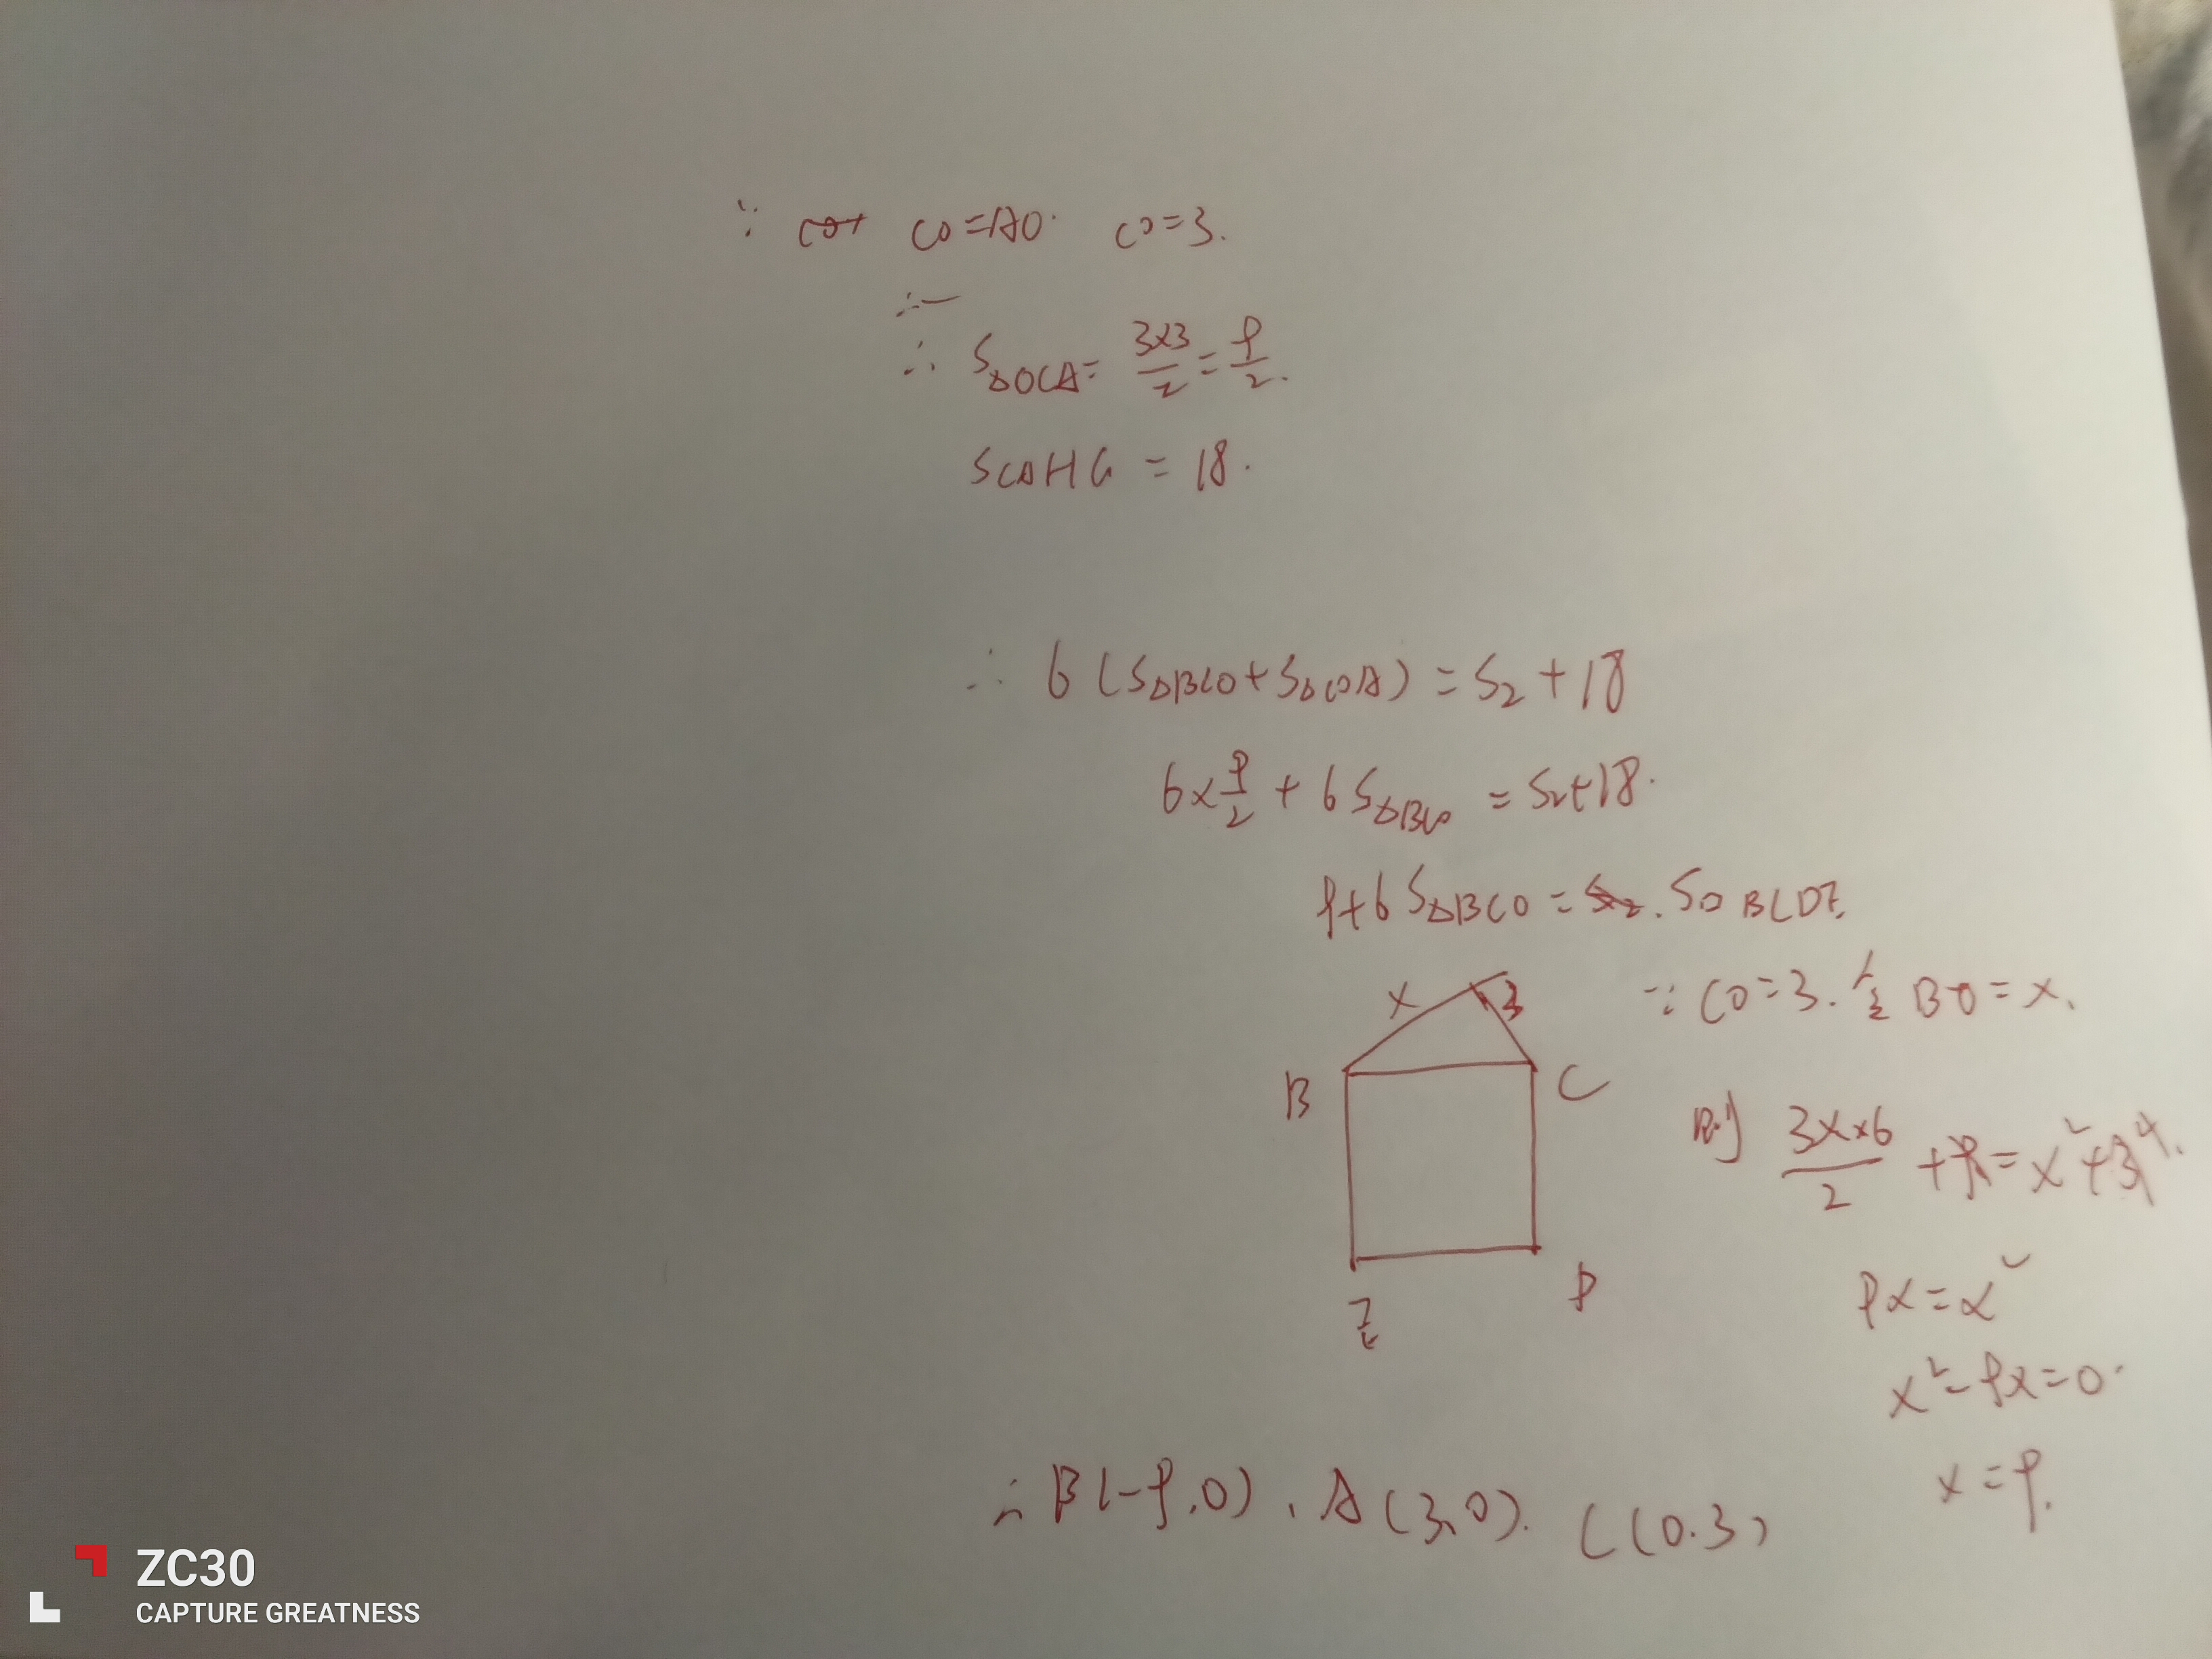 ∵ CO=AO. CO=3.
∴
∴ S△OCA= 3×3/2 = 9/2.
SCAHG = 18.
∴ 6(S△BCO+S△COA) = S2+18
6×9/2 + 6S△BCO = S2+18.
9+6S△BCO = S□BCDE.
∵ CO=3. 令 BO=x.
x
3
B
C
E
D
则 3x×6/2 +9=x²+9.
9x=x²
x²-9x=0.
x=9.
∴ B(-9,0), A(3,0). C(0.3)
ZC30
CAPTURE GREATNESS